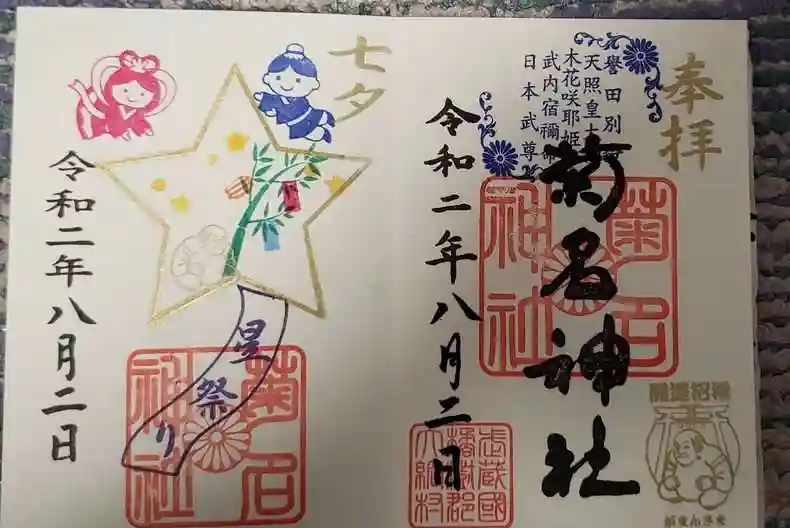 奉拝
誉田別
天照皇大
木花咲耶姫
武内宿禰命
日本武尊
菊名神社
菊名神社
令和二年八月二日
武蔵國
橘樹郡
大綱村
開運招福
七夕
星祭り
菊名神社
令和二年八月二日